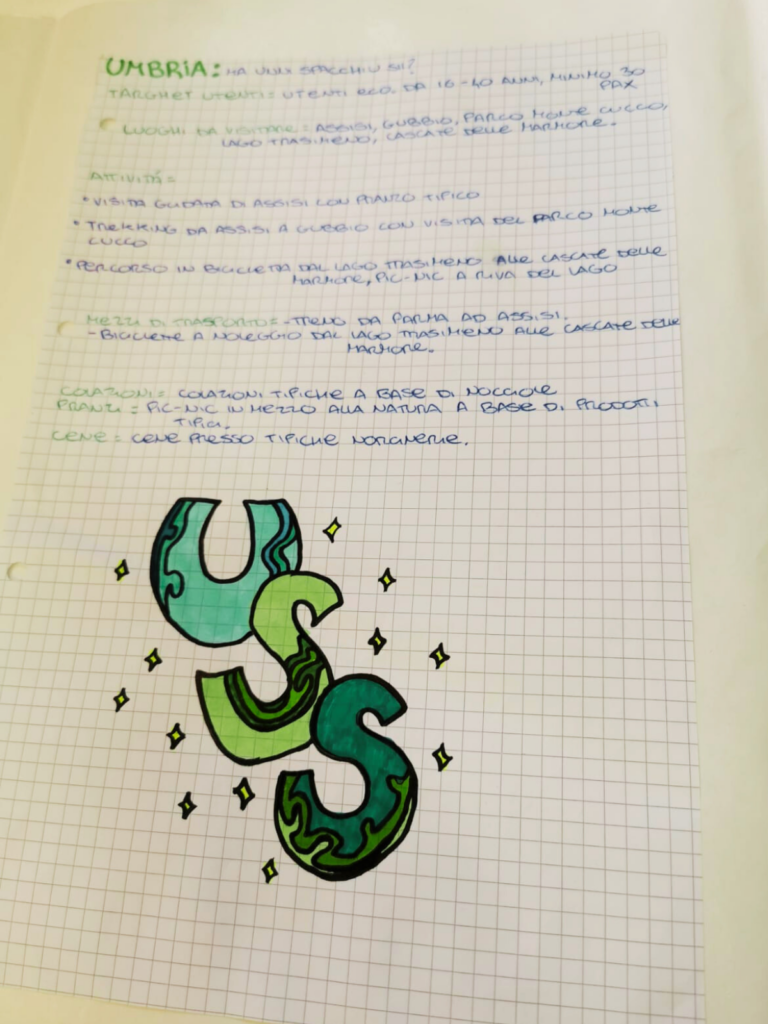 UMBRIA: MA UNN SPACCHIU SII?
TARGHET UTENTI = UTENTI ECO. DA 16-40 ANNI, MINIMO 30
PAX
LUOGHI DA VISITARE = ASSISI, GUBBIO, PARCO MONTE CUCCO,
LAGO TRASIMENO, CASCATE DELLE MARMORE.
ATTIVITÁ =
• VISITA GUIDATA DI ASSISI CON PRANZO TIPICO
• TREKKING DA ASSISI A GUBBIO CON VISITA DEL PARCO MONTE
CUCCO
• PERCORSO IN BICICLETTA DAL LAGO TRASIMENO ALLE CASCATE DELLE
MARMORE, PIC-NIC A RIVA DEL LAGO
MEZZI DI TRASPORTO = - TRENO DA PARMA AD ASSISI.
- BICICLETE A NOLEGGIO DAL LAGO TRASIMENO ALLE CASCATE DELLE
MARMORE.
COLAZIONI = COLAZIONI TIPICHE A BASE DI NOCCIOLE
PRANZI = PIC-NIC IN MEZZO ALLA NATURA A BASE DI PRODOTTI
TIPICI.
CENE = CENE PRESSO TIPICHE NORCINERIE.
U
S
S